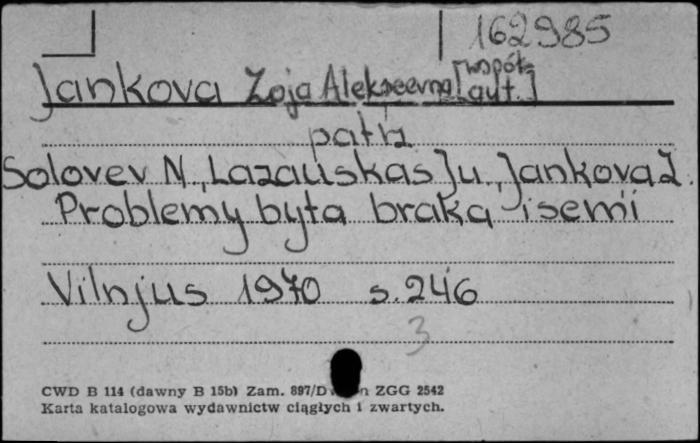 162985
Jankova Zoja Alekseevna [współ. aut.]
patrz
Solovev N., Lazauskas Ju., Jankova Z.
Problemy byta braka i semi
Vilnjus 1970 s. 246
3
CWD B 114 (dawny B 15b) Zam. 897/D n ZGG 2542
Karta katalogowa wydawnictw ciągłych i zwartych.